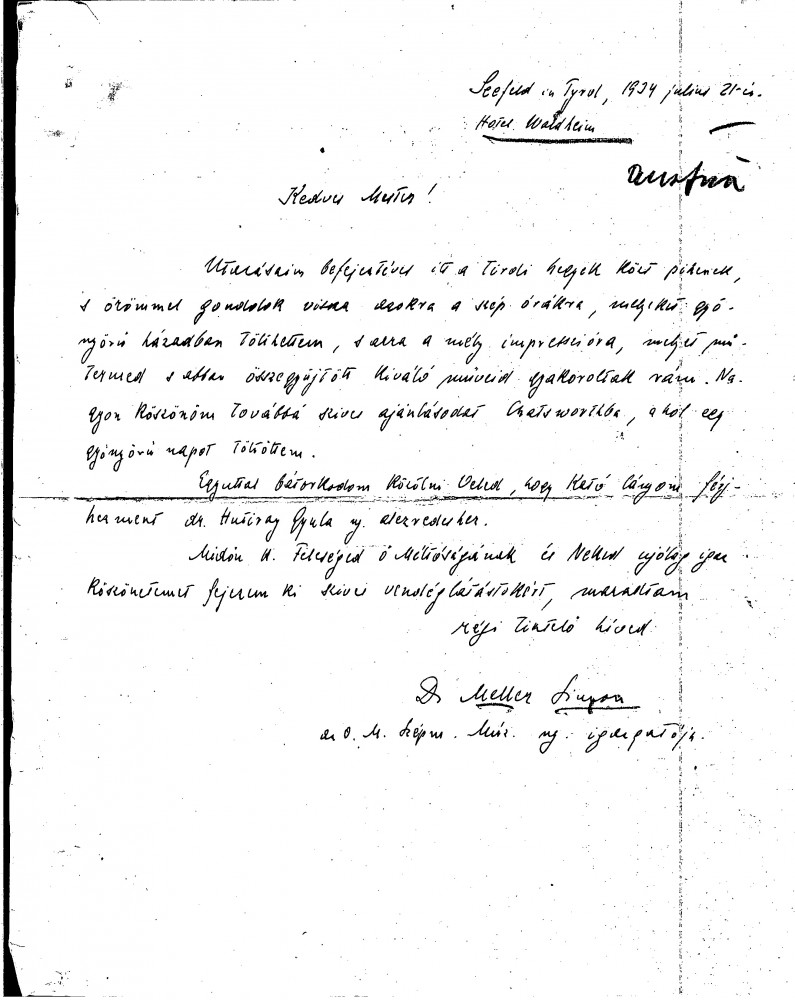 Seefeld in Tyrol, 1934 julius 21-én.
Hotel Waldheim
Austria
Kedves Mester!
Utazásaim befejeztével itt a Tiroli hegyek közt pihenek,
s örömmel gondolok vissza azokra a szép órákra, melyeket gyö-
nyörü házadban tölthettem, s arra a mély impresszióra, melyet mü-
termed s abban összegyüjtött kiváló müveid gyakoroltak rám. Na-
gyon köszönöm továbbá szives ajánlásodat Chatsworthba, ahol egy
gyönyörü napot töltöttem.
Egyuttal bátorkodom közölni Veled, hogy Kató lányom férj-
hezment dr. Gyula ny. alezredeshez.
Midön Feleséged ö Méltóságának és Neked ujólag igaz
köszönetemet fejezem ki szives vendéglátástokért, maradtam
régi tisztelö hived
Dr Meller Simon
az O. M. Szépm. Múz. ny. igazgatója.